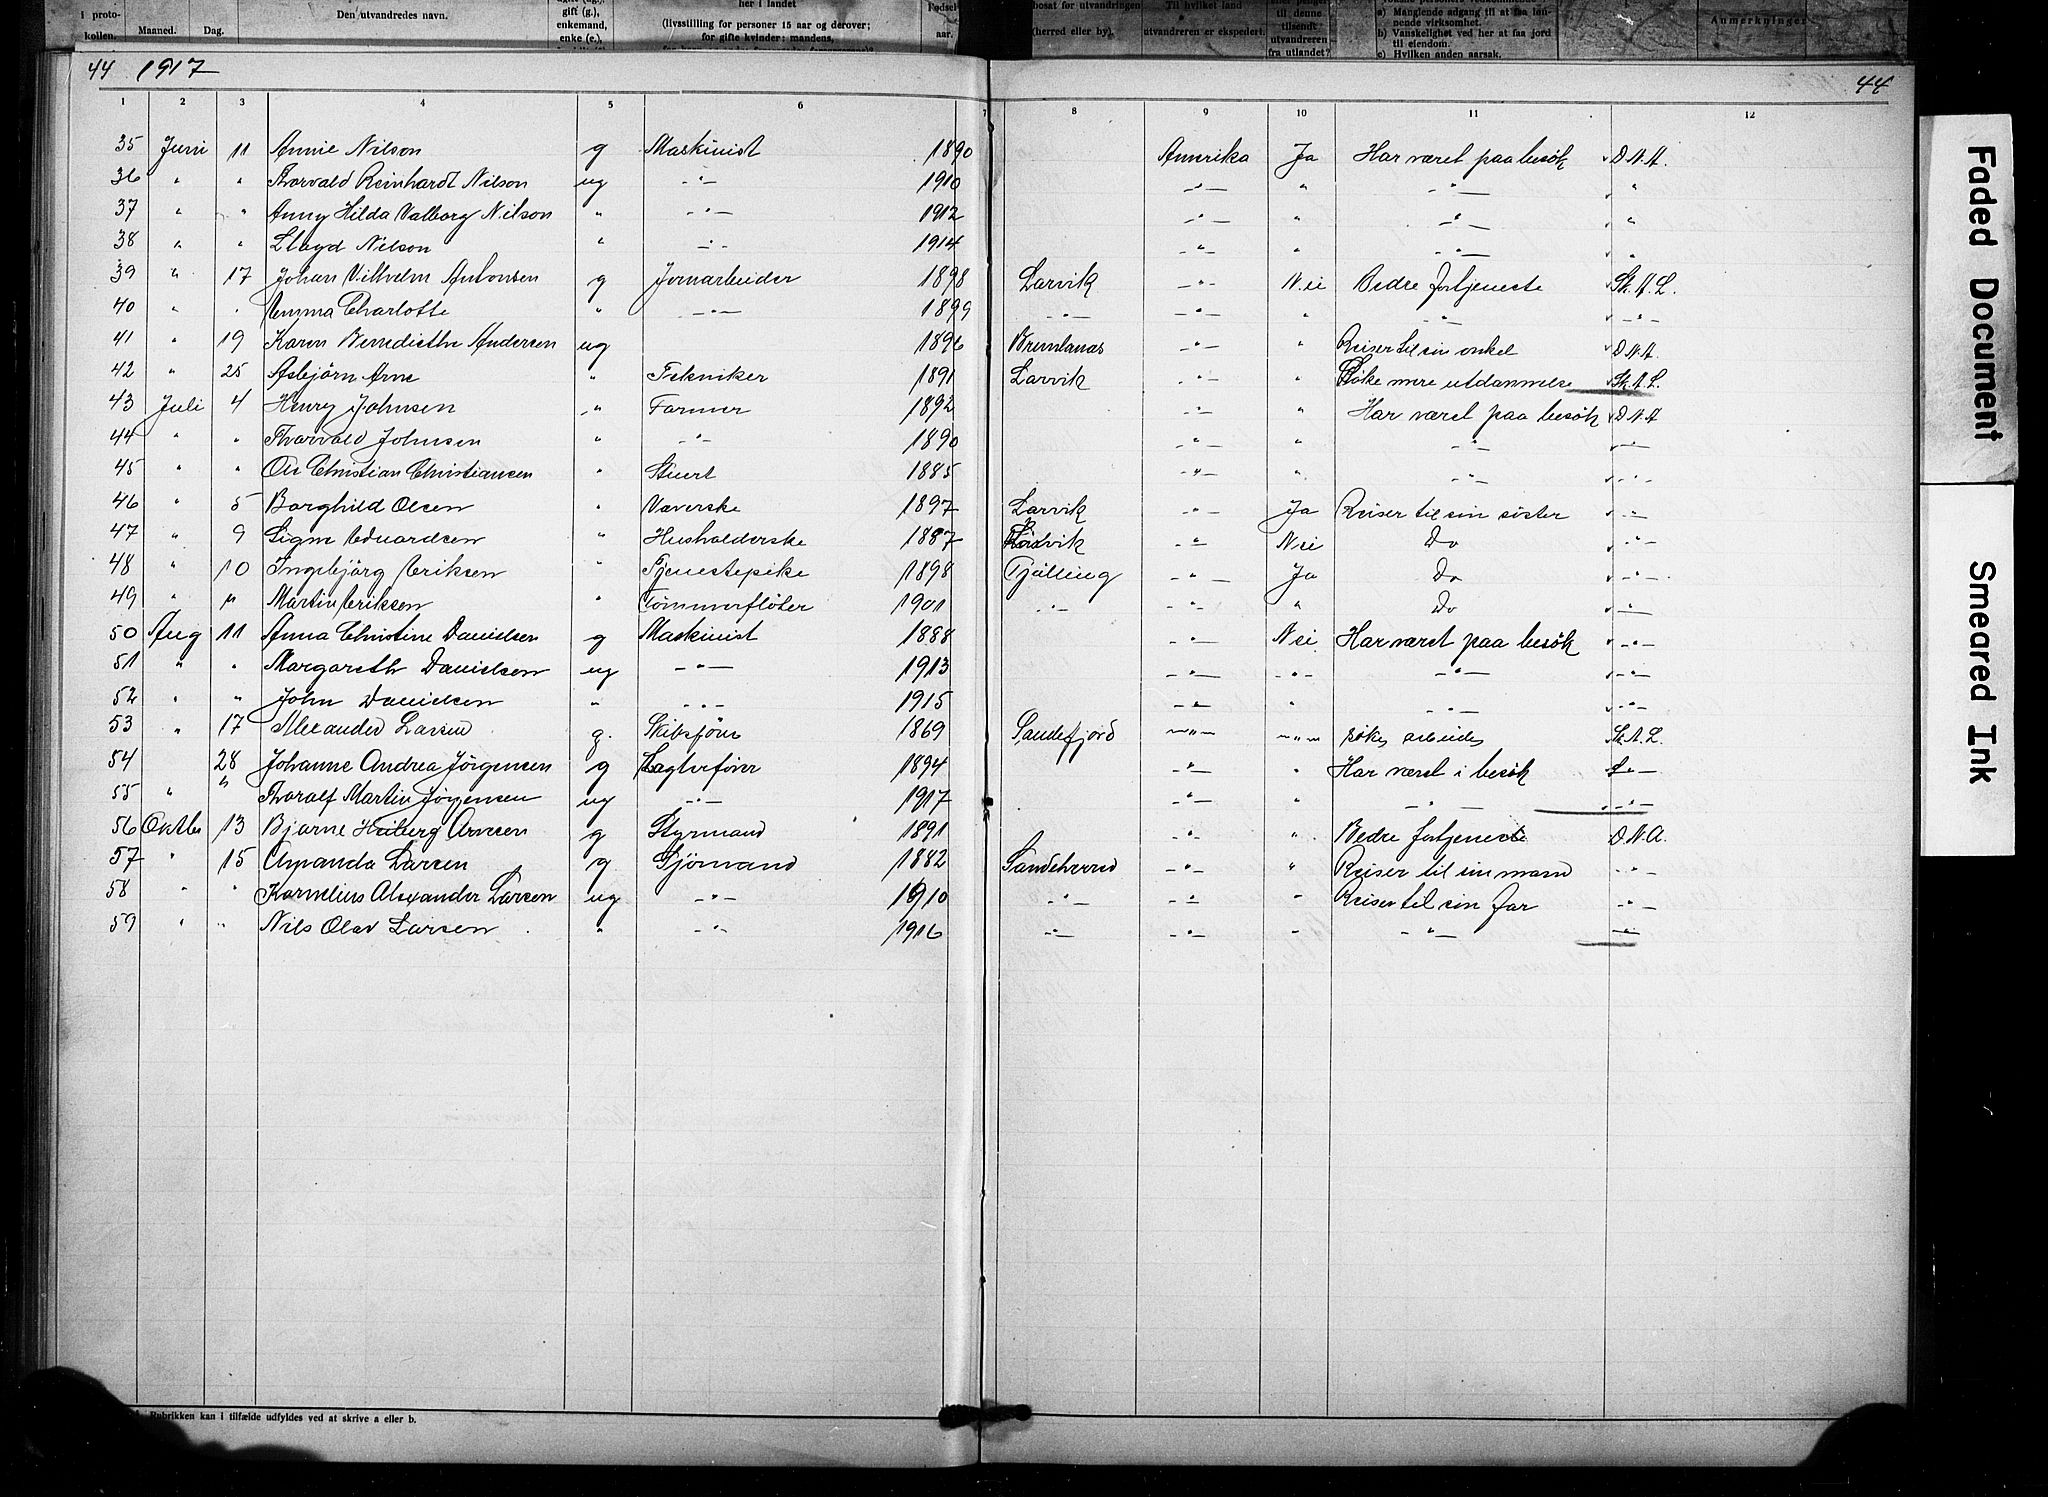 i proto-
kollen. Maaned. Dag. Den utvandredes navn. gift (g.), enkemand, enke (e.), her i landet (livsstilling for personer 15 aar og derover; for gifte kvinder: mandens, Fødsels aar. bosat før utvandringen (herred eller by). Til hvilket land utvandreren er ekspedert. til denne tilsendt utvandreren fra utlandet? a) Manglende adgang til at faa løn-
nende virksomhet.
b) Vanskelighet ved her at faa jord
til eiendom.
c) Hvilken anden aarsak. Anmerkninger
44 1917 44
1 2 3 4 5 6 7 8 9 10 11 12
35 Juni 11 Annie Nilson g Maskinist 1890 Amerika Ja Har været paa besök D.N.A.
36 " " Thorvald Reinhardt Nilson ug -"- 1910 -"- " -"- "
37 " " Anny Hilda Valborg Nilson " -"- 1912 -"- " -"- "
38 " " Lloyd Nilson " -"- 1914 -"- " -"- "
39 " 17 Johan Vilhelm Antonsen g Jernarbeider 1898 Larvik -"- Nei Bedre fortjeneste Sk.A.L.
40 " " Emma Charlotte " -"- 1899 -"- -"- " -"- -"-
41 " 19 Karen Benedicthe Andersen ug 1896 Brunlanæs -"- " Reiser til sin onkel D.N.A.
42 " 25 Asbjörn Arne " Tekniker 1891 Larvik -"- " Söke mere utdannelse Sk.A.L.
43 Juli 4 Henry Johnsen " Farmer 1892 -"- " Har været paa besök D.N.A
44 " " Thorvald Johnsen " -"- 1890 -"- " -"- -"-
45 " " Ole Christian Christiansen " Stuert 1885 -"- " -"- -"-
46 " 5 Borghild Olsen " Væverske 1897 Larvik -"- Ja Reiser til sin söster -"-
47 " 9 Signe Eduardsen " Husholderske 1887 Larvik -"- Nei Do -"-
48 " 10 Ingebjörg Eriksen " Tjenestepike 1898 Tjölling -"- Ja Do -"-
49 " " Martin Eriksen " Tömmerflöter 1901 -"- -"- " Do -"-
50 Aug 11 Anna Christine Danielsen g Maskinist 1888 -"- Nei Har været paa besök -"-
51 " " Margareth Danielsen ug -"- 1913 -"- -"- -"- -"-
52 " " John Danielsen " -"- 1915 -"- " -"- -"-
53 " 17 Alexander Larsen g. Skibsförer 1869 Sandefjord -"- -"- söke arbeide Sk.A.L.
54 28 Johanne Andrea Jörgensen g Lægterförer 1894 -"- " Har været i besök -"-
55 " " Thoralf Martin Jörgensen ug -"- 1917 -"- " -"- -"-
56 Oktbr 13 Bjarne Heiberg Arnesen g Styrmand 1891 -"- " Bedre fortjeneste D.N.A.
57 " 15 Amanda Larsen g Sjömand 1882 Sandeherred -"- " Reiser til sin mand -"-
58 " " Kornelius Alexander Larsen ug -"- 1910 -"- -"- " Reiser til sin far -"-
59 " " Nils Olav Larsen " -"- 1916 -"- -"- " -"- -"-
Rubrikken kan i tilfælde utfyldes ved at skrive a eller b.
Faded Document
Smeared Ink